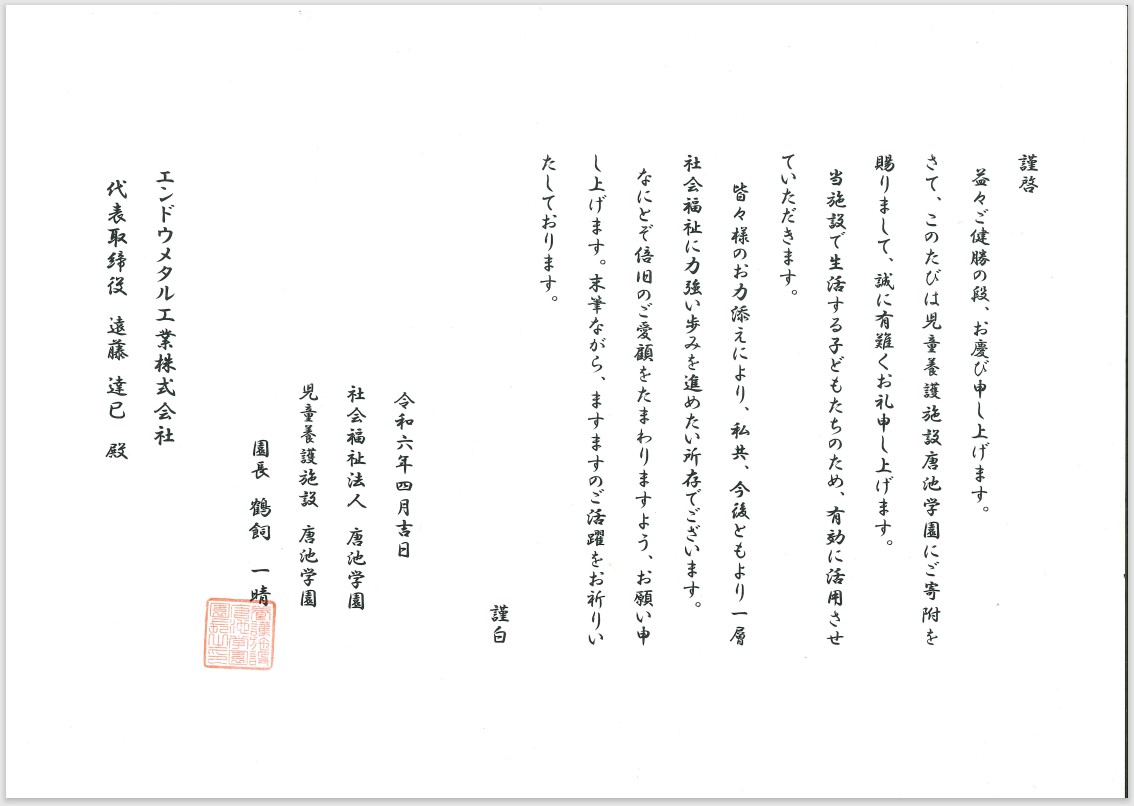 謹啓
益々ご健勝の段、お慶び申し上げます。
さて、このたびは児童養護施設唐池学園にご寄附を
賜りまして、誠に有難くお礼申し上げます。
当施設で生活する子どもたちのため、有効に活用させ
ていただきます。
皆々様のお力添えにより、私共、今後ともより一層
社会福祉に力強い歩みを進めたい所存でございます。
なにとぞ倍旧のご愛顧をたまわりますよう、お願い申
し上げます。末筆ながら、ますますのご活躍をお祈りい
たしております。
謹白
令和六年四月吉日
社会福祉法人 唐池学園
児童養護施設 唐池学園
園長 鶴飼 一晴
エンドウメタル工業株式会社
代表取締役 遠藤 達巳 殿